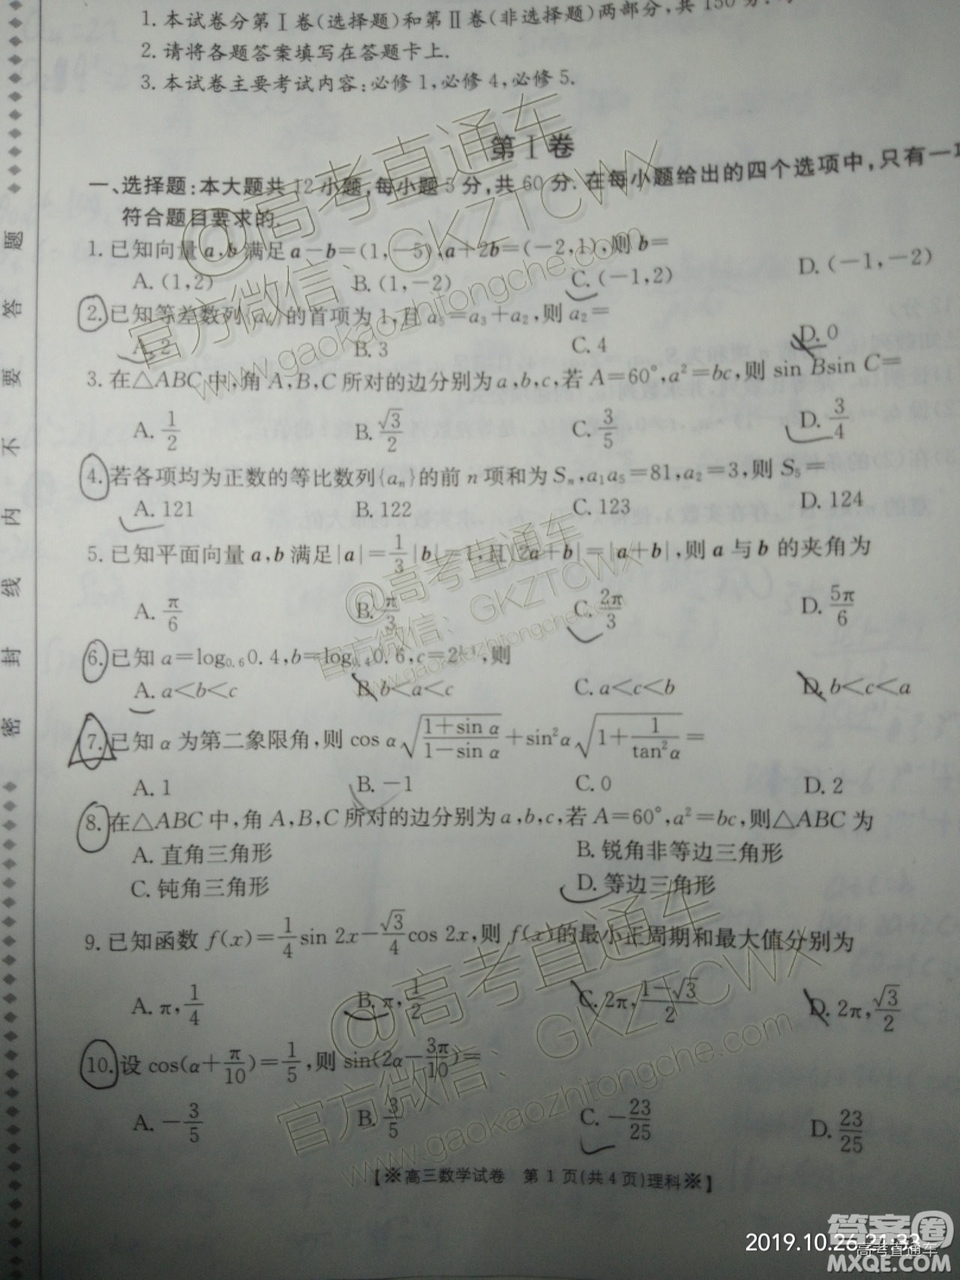 1.本试卷分第Ⅰ卷(选择题)和第Ⅱ卷(非选择题)两部分,共150分.
2.请将各题答案填写在答题卡上.
3.本试卷主要考试内容:必修1,必修4,必修5.
第Ⅰ卷
一、选择题:本大题共12小题,每小题5分,共60分.在每小题给出的四个选项中,只有一项
符合题目要求的.
1.已知向量a,b满足a-b=(1,-5),a+2b=(-2,1),则b=
A.(1,2) B.(1,-2) C.(-1,2) D.(-1,-2)
2.已知等差数列{aₙ}的首项为1,且a₅=a₃+a₂,则a₂=
A.2 B.3 C.4 D.0
3.在△ABC中,角A,B,C所对的边分别为a,b,c,若A=60°,a²=bc,则sin Bsin C=
A.1/2 B.√3/2 C.3/5 D.3/4
4.若各项均为正数的等比数列{aₙ}的前n项和为Sₙ,a₁a₅=81,a₂=3,则S₅=
A.121 B.122 C.123 D.124
5.已知平面向量a,b满足|a|=1/3|b|=1,且|2a+b|=|a+b|,则a与b的夹角为
A.π/6 B.π/3 C.2π/3 D.5π/6
6.已知a=log₀.₆0.4,b=log₀.₄0.6,c=2 ,则
A.a<b<c B.b<a<c C.a<c<b D.b<c<a
7.已知α为第二象限角,则cos α√((1+sin α)/(1-sin α))+sin²α√(1+1/tan²α)=
A.1 B.-1 C.0 D.2
8.在△ABC中,角A,B,C所对的边分别为a,b,c,若A=60°,a²=bc,则△ABC为
A.直角三角形 B.锐角非等边三角形
C.钝角三角形 D.等边三角形
9.已知函数f(x)=1/4 sin 2x-√3/4 cos 2x,则f(x)的最小正周期和最大值分别为
A.π,1/4 B.π,1/2 C.2π,(1-√3)/2 D.2π,√3/2
10.设cos(α+π/10)=1/5,则sin(2α-3π/10)=
A.-3/5 B.3/5 C.-23/25 D.23/25
【※高三数学试卷 第1页(共4页)理科※】
题
答
要
不
内
线
封
密
@高考直通车
官方微信:GKZTCWX
www.gaokaozhitongche.com
@高考直通车
官方微信:GKZTCWX
www.gaokaozhitongche.com
@高考直通车
官方微信:GKZTCWX
www.gaokaozhitongche.com
2019.10.26 21:33
高考直通车
答案圈
MXQE.COM